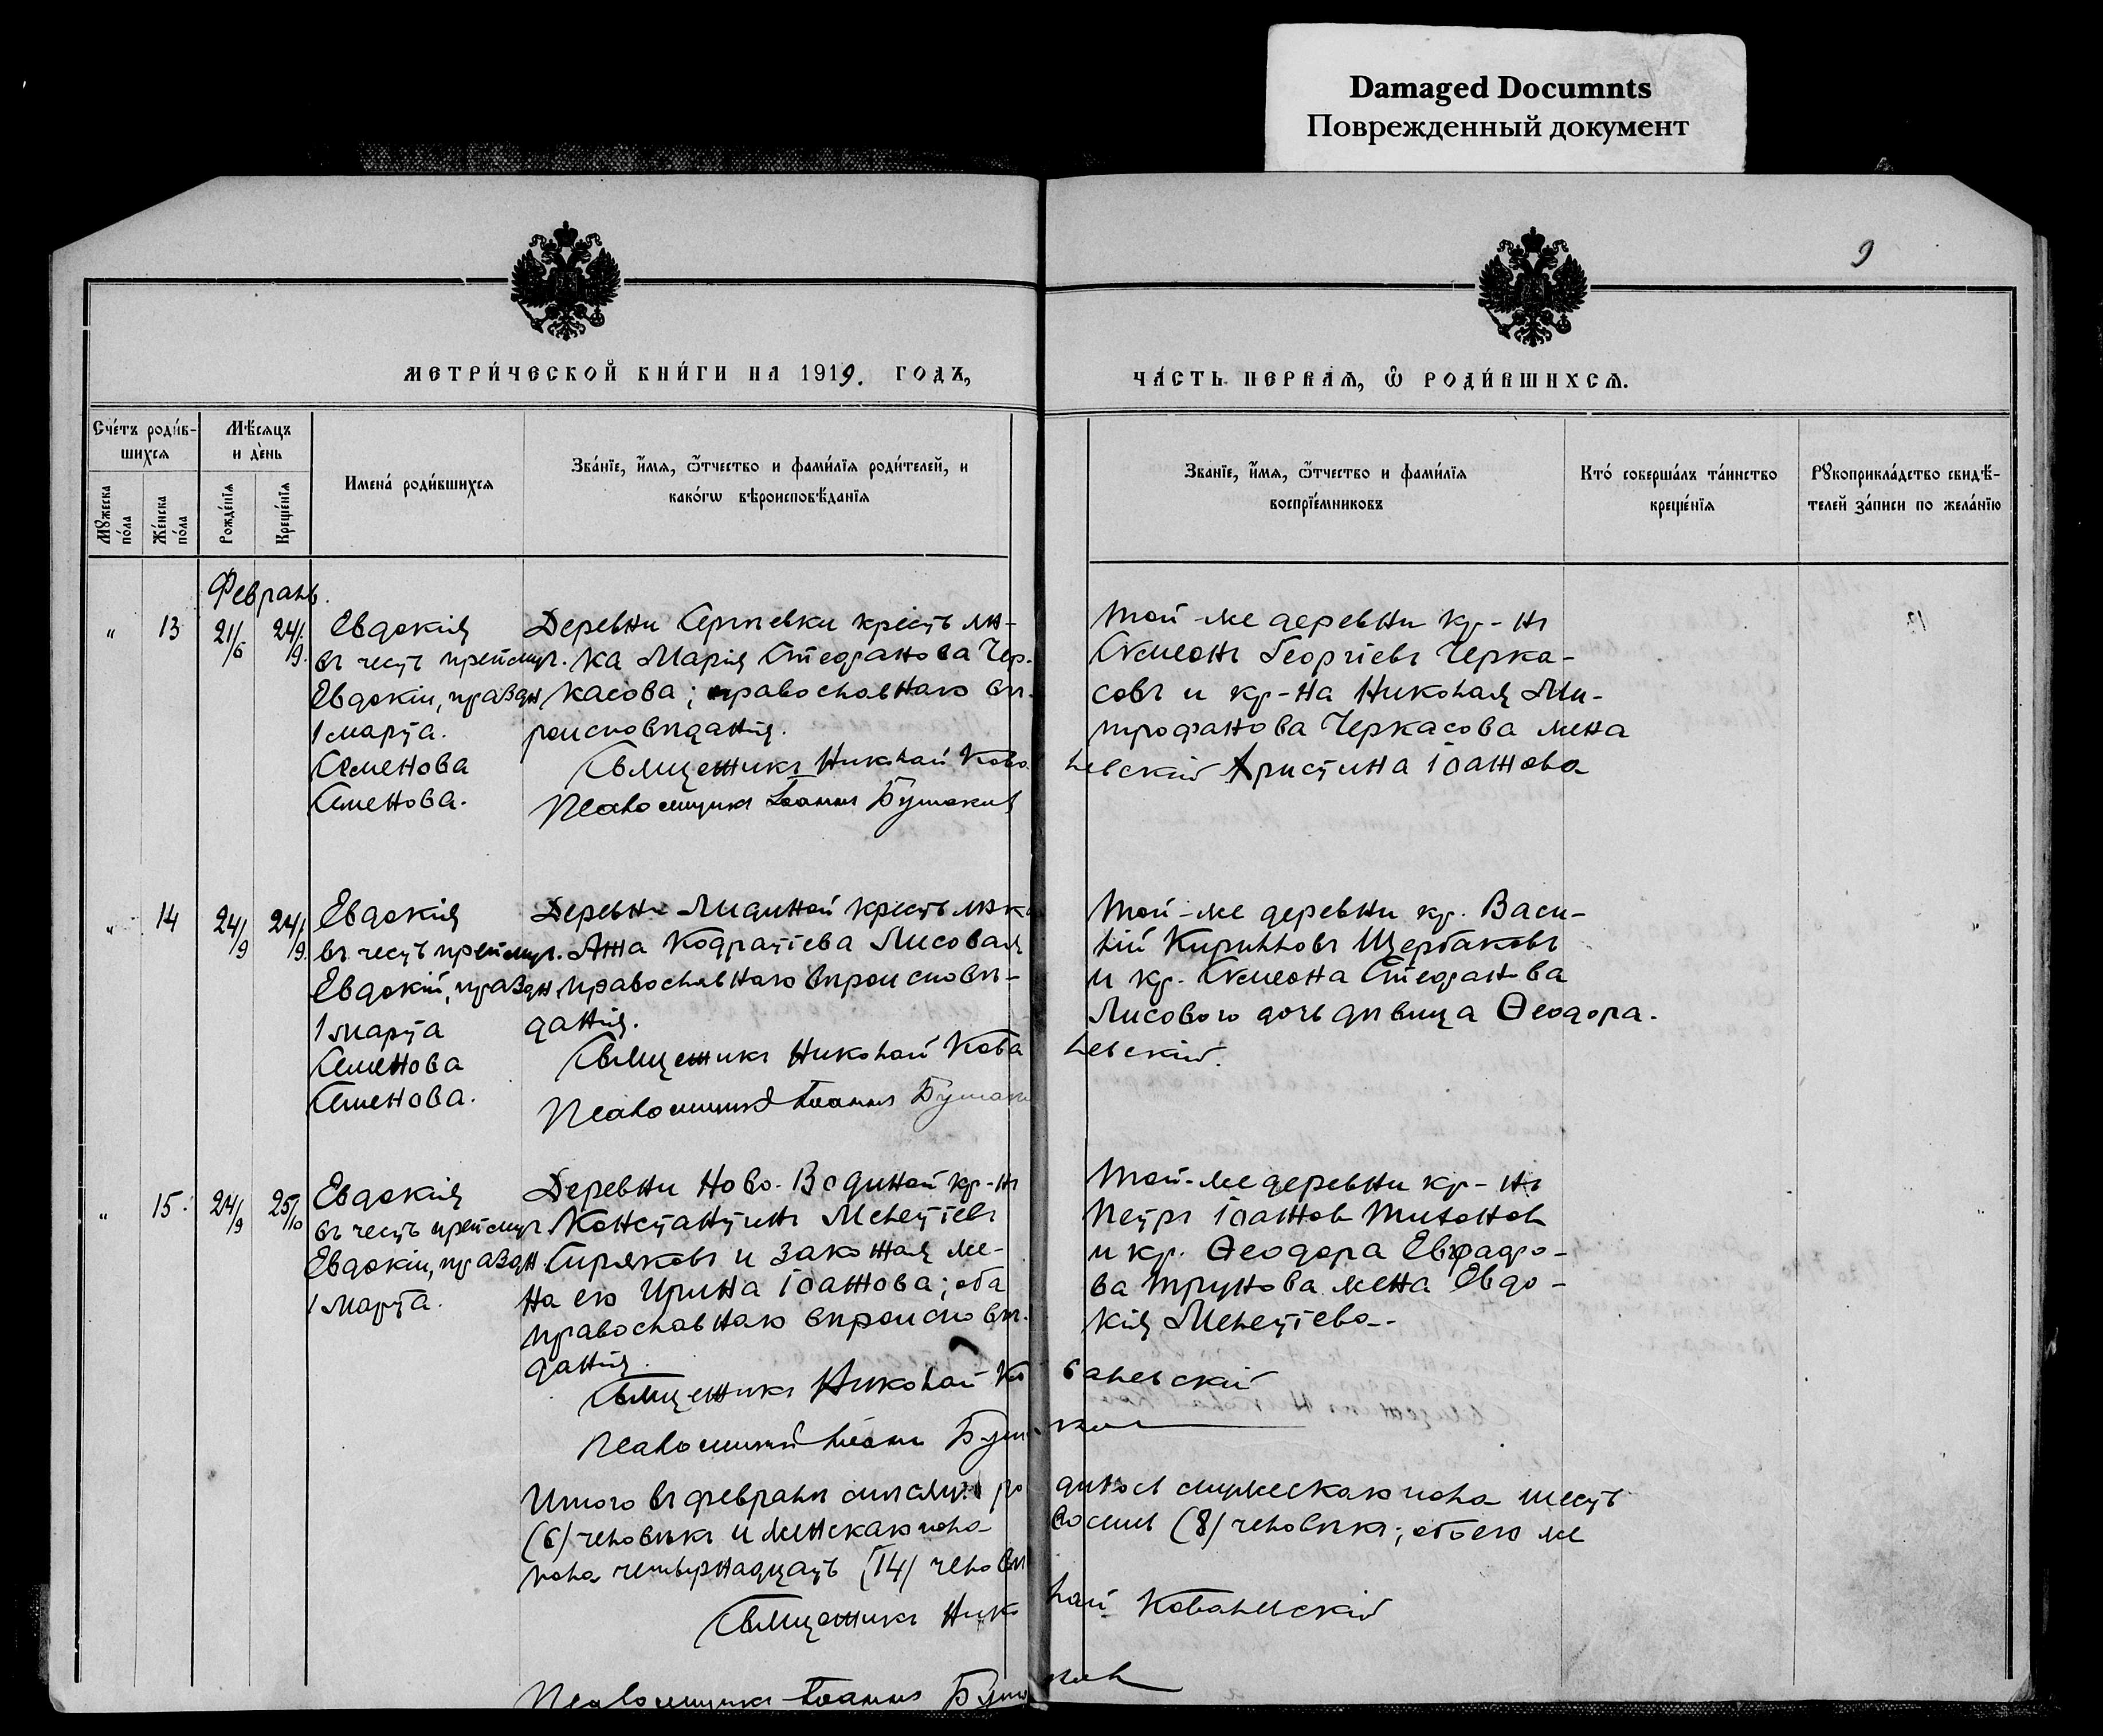 Damaged Documnts
Поврежденный документ
9
МЕТРИ́ЧЕСКОЙ КНИ́ГИ НА 1919. ГОДЪ,
ЧА́СТЬ ПЕРВАЯ, Ѿ РОДИ́ВШИХСЯ.
Сче́тъ роди́в-
шихся
Мѣ́сяцъ
и де́нь
Имена́ роди́вшихся
Зва́нїе, и́мя, ѻ́тчество и фами́лїя роди́телей, и
како́гѡ вѣроисповѣ́данїя
Зва́нїе, и́мя, ѻ́тчество и фами́лїя
воспрїе́мниковъ
Кто́ соверша́лъ та́инство
креще́нїя
Рꙋкоприкла́дство свидѣ́-
телей за́писи по жела́нїю
Мꙋжеска
по́ла
Же́нска
по́ла
Рожде́нїя
Креще́нїя
Февраль.
" 13 21/6 24/9.
Евдокія
въ честь препмуч.
Евдокіи, праздн
1 марта.
Семенова
Семенова.
Деревни Сергѣевки крестьян-
ка Марія Стефанова Чер-
касова; православнаго вѣ-
роисповѣданія.
Священникъ Николай Кова
левскій
Псаломщикъ Іоаннъ
Той-же деревни кр-нъ
Симеонъ Георгіевъ Черка-
совъ и кр-на Николая Ми-
трофанова Черкасова жена
Христина Іоаннова
" 14 24/9 24/9.
Евдокія
въ честь препмуч.
Евдокіи, праздн
1 марта
Семенова
Семенова.
Деревни Лидиной крестьянка
Анна Кодратіева Лисовая
православнаго вѣроисповѣ-
данія.
Священникъ Николай Кова
левскій.
Псаломщикъ Іоаннъ
Той-же деревни кр. Васи-
лій Кирилловъ Щербаковъ
и кр. Симеона Стефанова
Лисового дочь дѣвица Ѳеодора.
" 15. 24/9 25/10
Евдокія
въ честь препмуч
Евдокіи, праздн.
1 марта.
Деревни Ново-Водиной кр-нъ
Константинъ Мелетіевъ
Сиряковъ и законная же-
на его Ирина Іоаннова; оба
православнаго вѣроисповѣ-
данія.
Священникъ Николай Ко
валевскій
Псаломщикъ Іоаннъ
Той-же деревни кр-нъ
Петръ Іоаннов Тихонов
и кр. Ѳеодора
ва Трунова жена Евдо-
кія Мелетіева.
Итого въ февралѣ мѣсяцѣ ро дилось мужескаго пола шесть
(6) человѣкъ и женскаго пола восемь (8) человѣкъ; обоего же
пола четырнадцать (14) человѣ
Священникъ Нико лай Ковалевскій
Псаломщикъ Іоаннъ